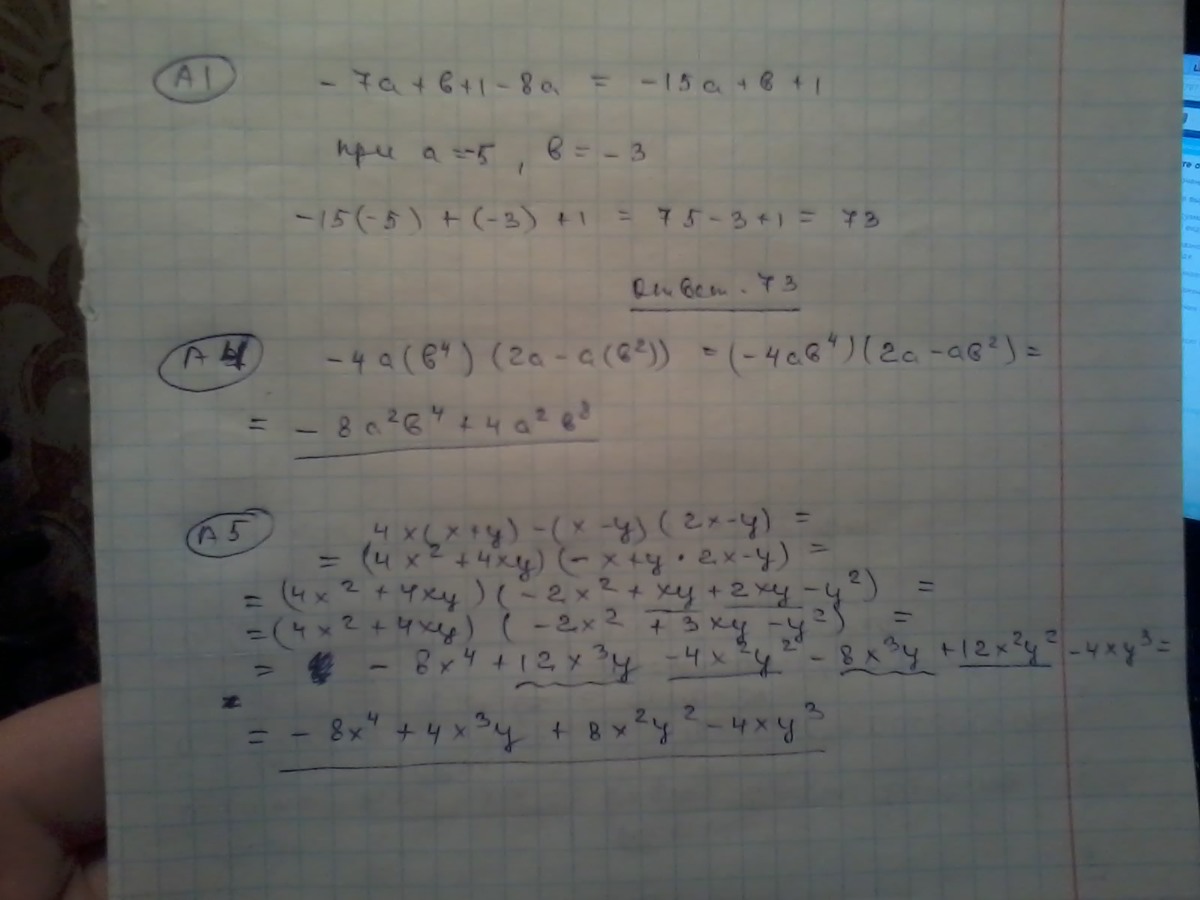 А1 - 7a + b + 1 - 8a = -15a + b + 1
при a = -5, b = - 3
-15(-5) + (-3) + 1 = 75 - 3 + 1 = 73
Ответ. 73
А4 - 4a(b⁴) (2a - a(b²)) = (- 4ab⁴)(2a - ab²) =
= - 8a²b⁴ + 4a²b⁸
А5 4x(x+y) - (x-y)(2x-y) =
= (4x² + 4xy)(- x+y · 2x-y) =
= (4x² + 4xy)(- 2x² + xy + 2xy - y²) =
= (4x² + 4xy) (-2x² + 3xy - y²) =
= - 8x⁴ + 12x³y - 4x²y² - 8x³y + 12x²y² - 4xy³ =
= - 8x⁴ + 4x³y + 8x²y² - 4xy³